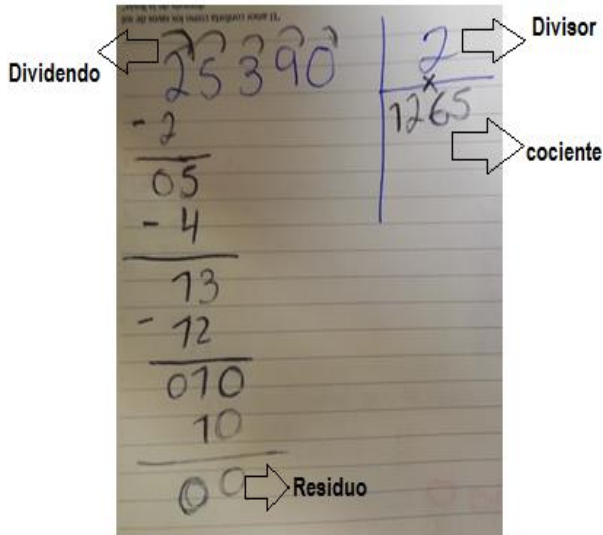 Dividendo
25390 2
Divisor
1265
cociente
- 2
05
- 4
13
- 12
010
10
00
Residuo